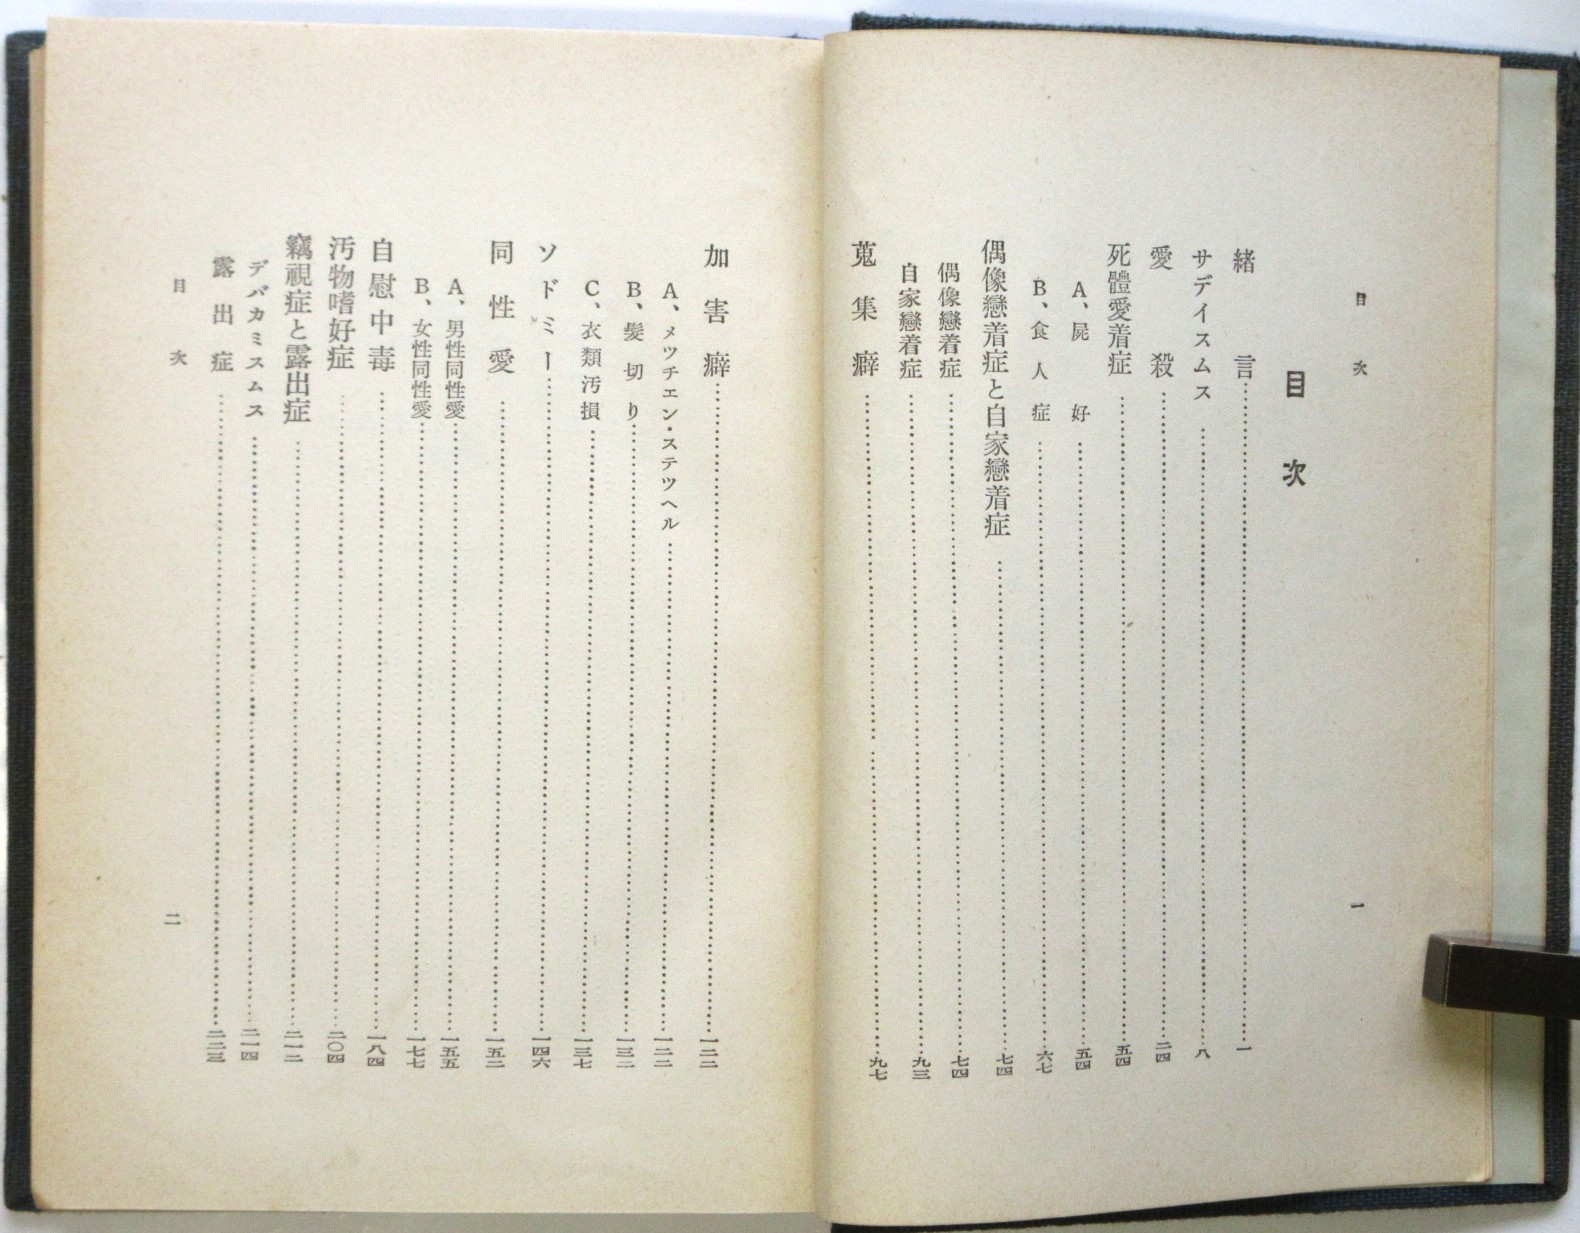 目次
一
目次
緒言……一
サデイスムス……八
愛殺……二四
死體愛着症……五四
A、屍好……五四
B、食人症……六七
偶像戀着症と自家戀着症……七四
偶像戀着症……七四
自家戀着症……九三
蒐集癖……九七
加害癖……一二二
A、メツチエン・ステツヘル……一二二
B、髮切り……一三二
C、衣類汚損……一三七
ソドミー……一四六
同性愛……一五二
A、男性同性愛……一五五
B、女性同性愛……一七七
自慰中毒……一八四
汚物嗜好症……二〇四
竊視症と露出症……二一二
デバカミスムス……二一四
露出症……二二三
目次
二